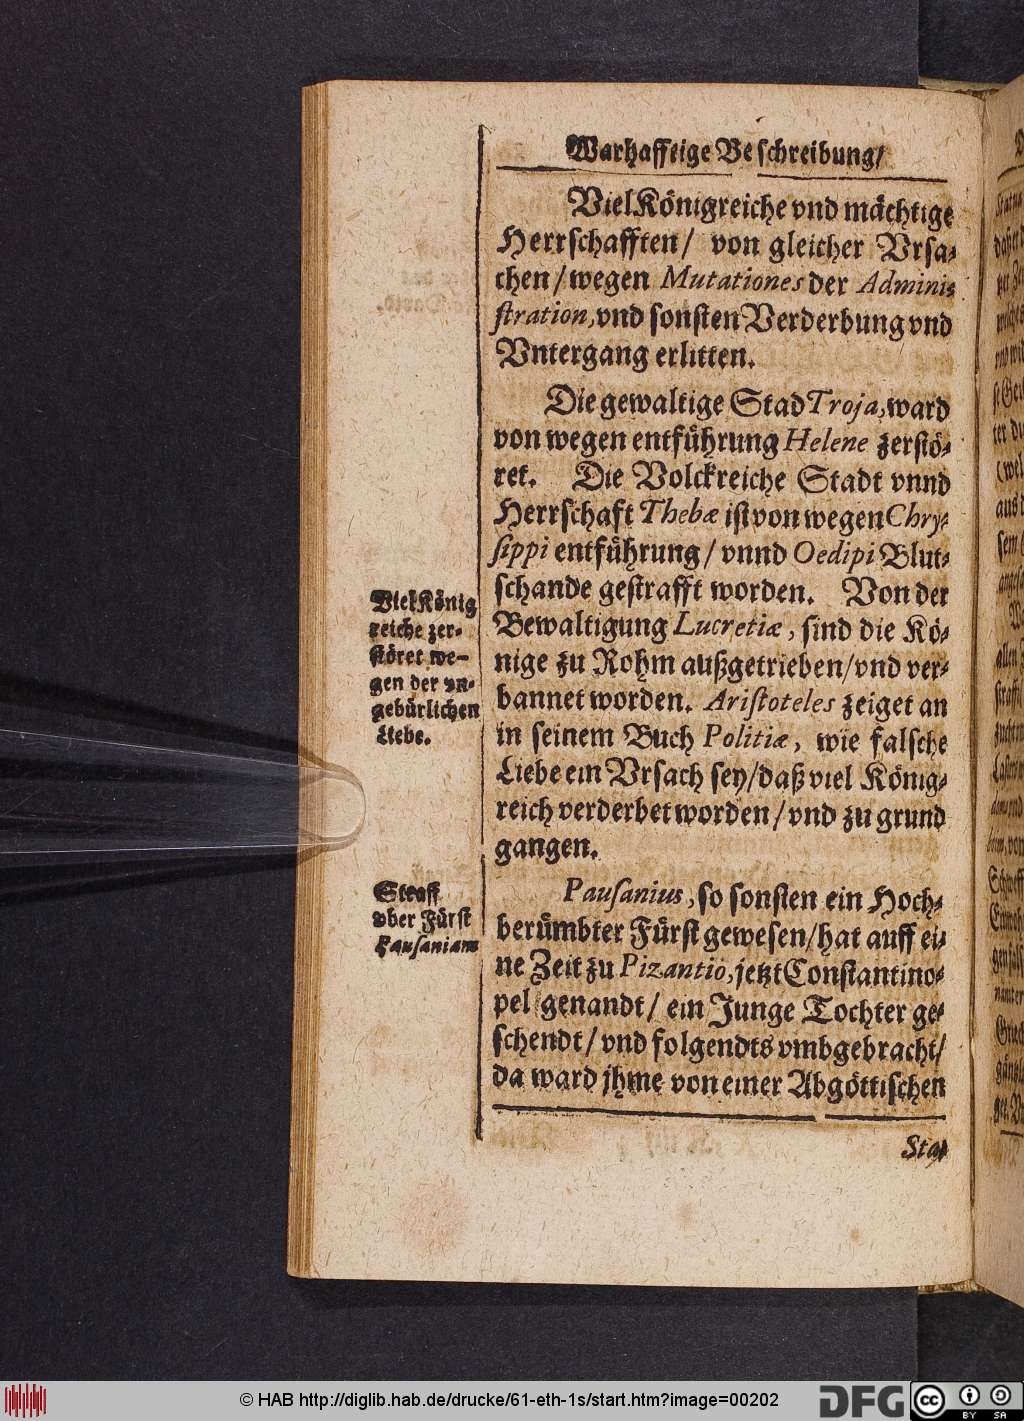 Warhafftige Beschreibung/
Viel Königreiche vnd mächtige
Herrschafften/ von gleicher Vrsa-
chen/wegen Mutationes der Admini-
stration, vnd sonsten Verderbung vnd
Vntergang erlitten.
Die gewaltige Stad Troja, ward
von wegen entführung Helene zerstö-
ret. Die Volckreiche Stadt vnnd
Herrschaft Thebæ ist von wegen Chry-
sippi entführung/ vnnd Oedipi Blut-
schande gestrafft worden. Von der
Bewaltigung Lucretiæ, sind die Kö-
nige zu Rohm außgetrieben/vnd ver-
bannet worden. Aristoteles zeiget an
in seinem Buch Politiæ, wie falsche
Liebe ein Vrsach sey/daß viel König-
reich verderbet worden/vnd zu grund
gangen.
Viel König
reiche zer-
störet we-
gen der vn-
gebürlichen
Liebe.
Pausanius, so sonsten ein Hoch-
berümbter Fürst gewesen/hat auff ei-
ne Zeit zu Pizantio, jetzt Constantino-
pel genandt/ ein Junge Tochter ge-
schendt/vnd folgendts vmbgebracht/
da ward jhme von einer Abgöttischen
Straff
vber Fürst
Pausaniam
Sta-
© HAB http://diglib.hab.de/drucke/61-eth-1s/start.htm?image=00202
DFG
cc
BY SA